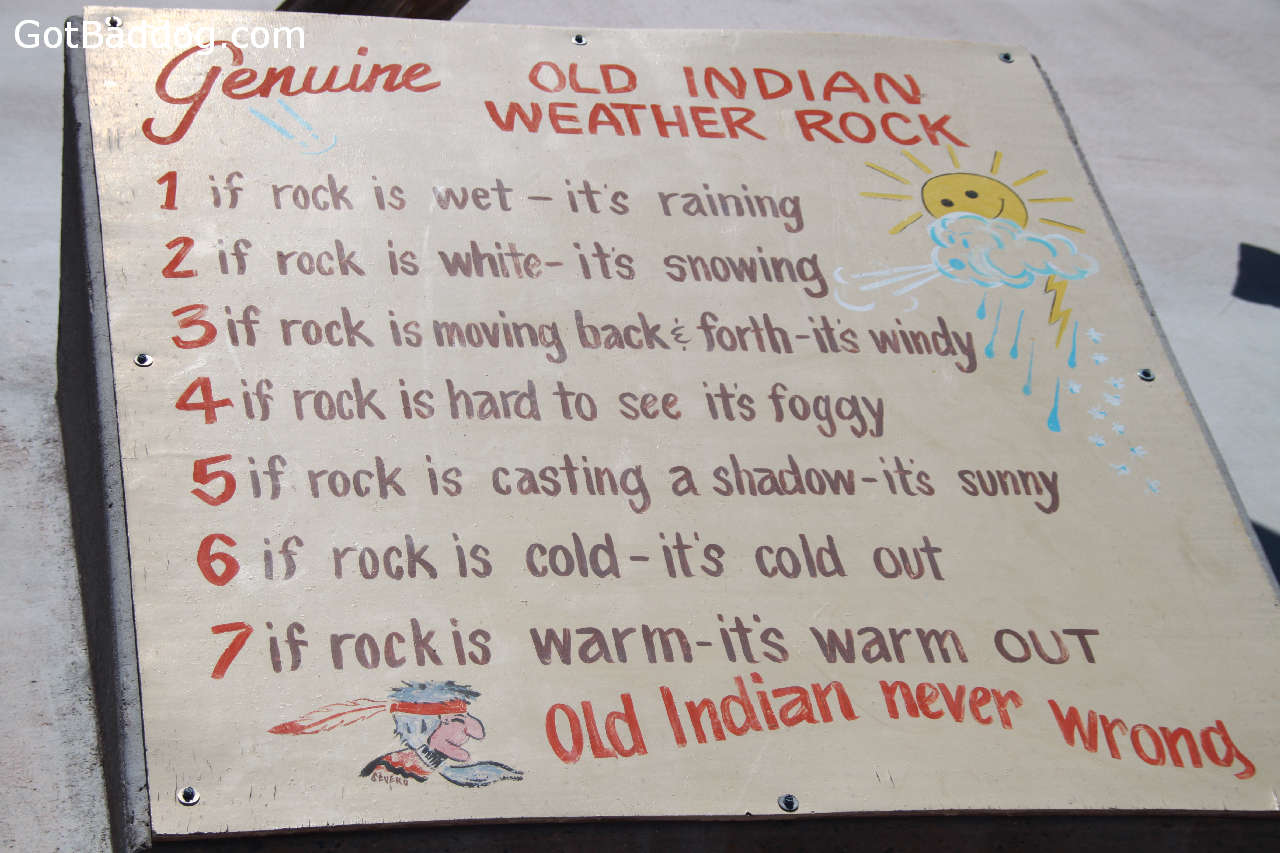 GotBaddog.com
Genuine OLD INDIAN
WEATHER ROCK
1 if rock is wet - it's raining
2 if rock is white - it's snowing
3 if rock is moving back & forth - it's windy
4 if rock is hard to see it's foggy
5 if rock is casting a shadow - it's sunny
6 if rock is cold - it's cold out
7 if rock is warm - it's warm OUT
Old Indian never wrong